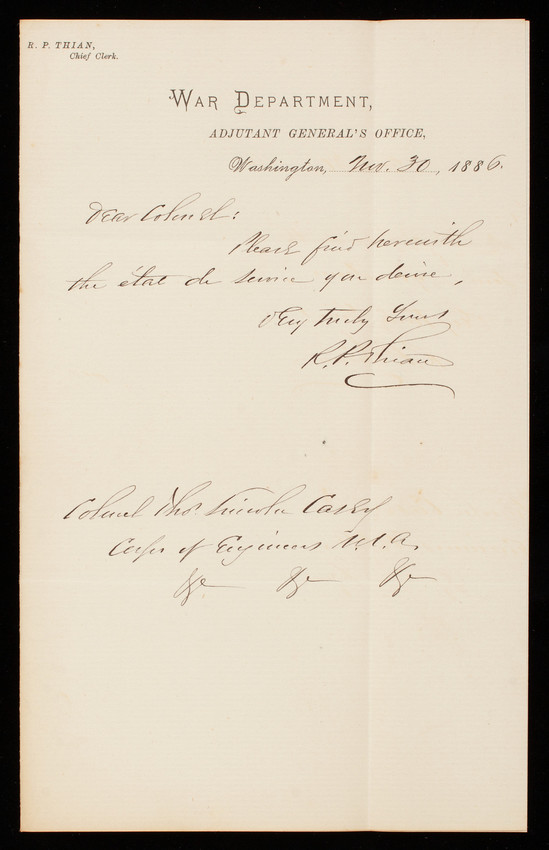 R. P. THIAN,
Chief Clerk.
WAR DEPARTMENT,
ADJUTANT GENERAL'S OFFICE,
Washington, Nov. 30, 1886.
Dear Colonel:
Please find herewith
the état de service you desire,
Very truly Yours
R. P. Thian
Colonel Thos. Lincoln Casey
Corps of Engineers U.S.A.
&c &c &c